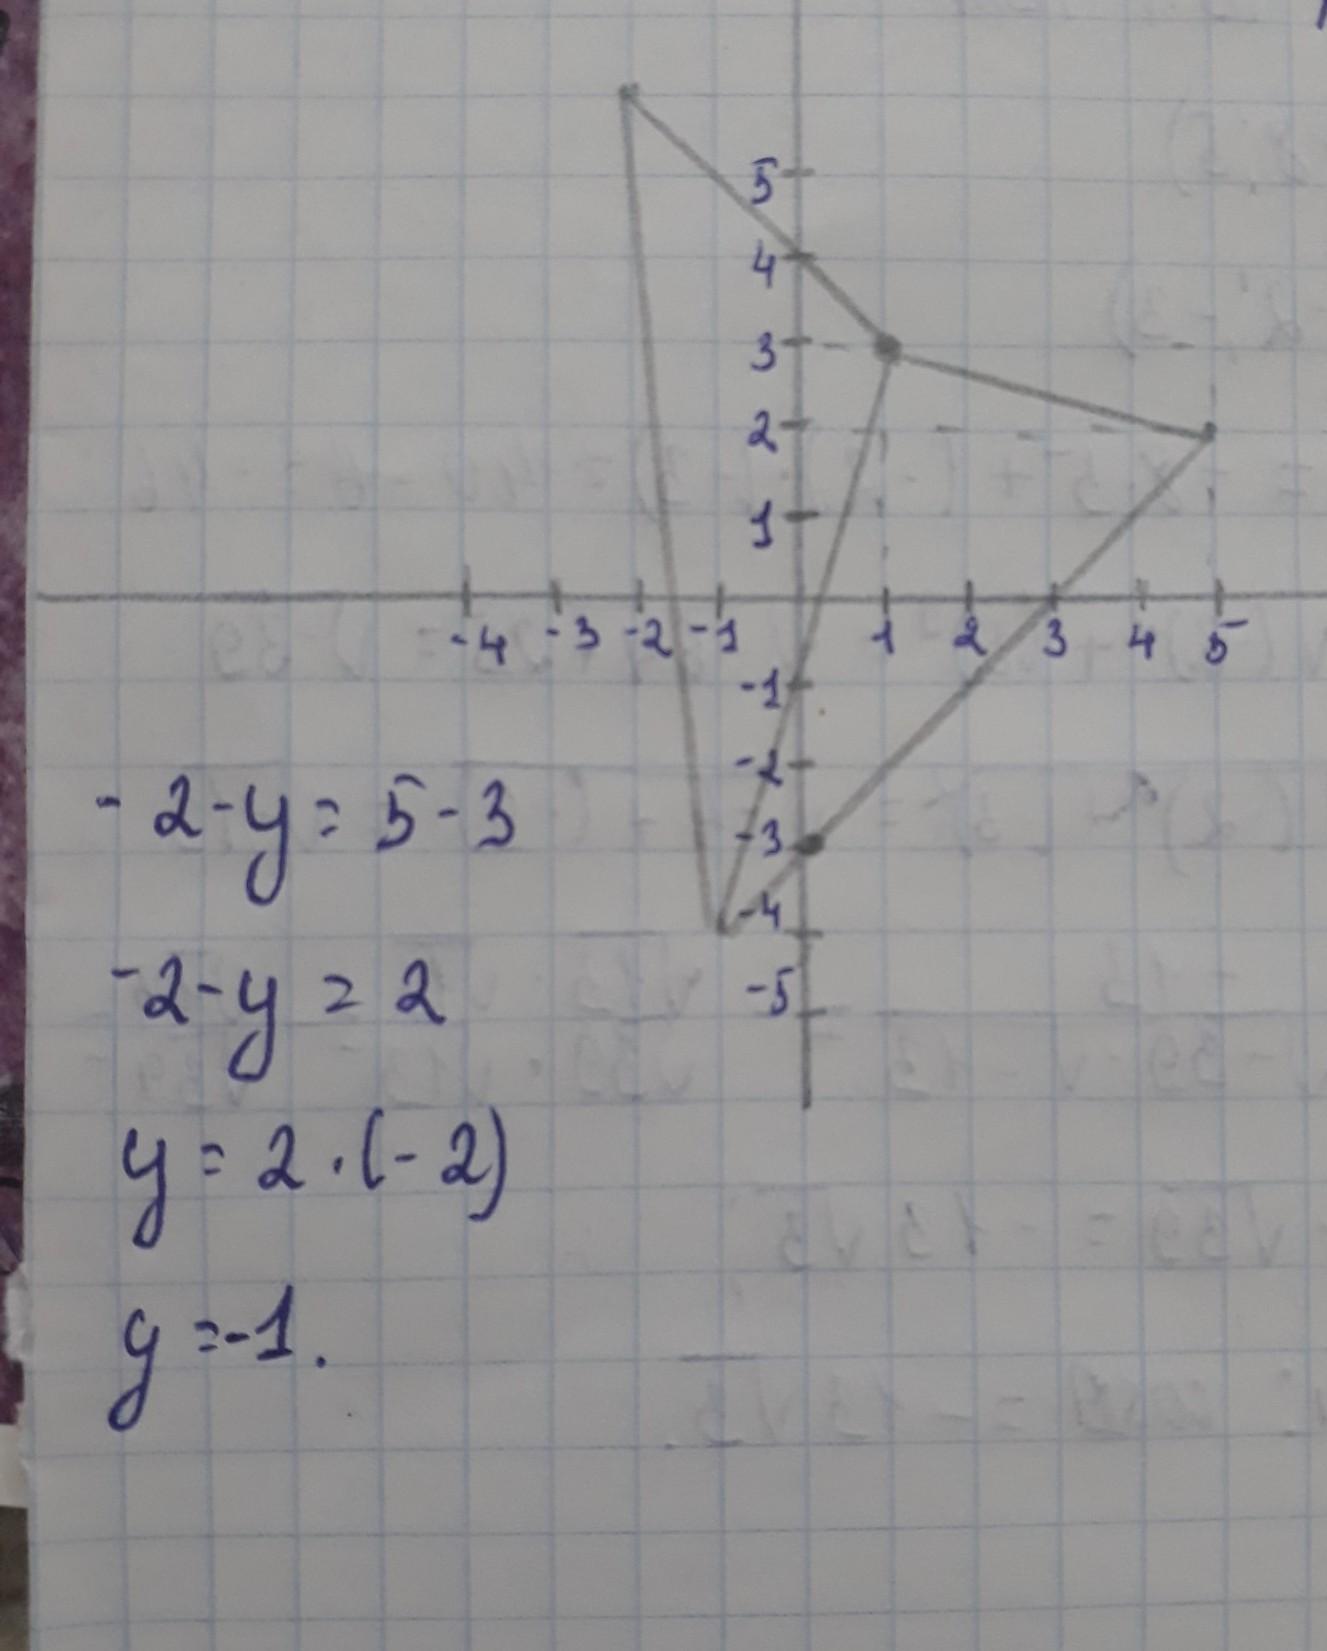 5
4
3
2
1
-4 -3 -2 -1 1 2 3 4 5
-1
-2
-3
-4
-5
-2-y=5-3
-2-y=2
y=2·(-2)
y=-1.